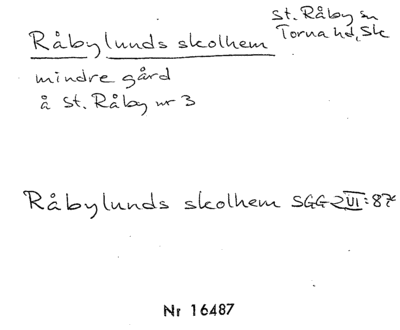 St. Råby sn
Råbylunds skolhem Torna hd, Sk
mindre gård
å St. Råby nr 3
Råbylunds skolhem SGG 2VI:87
Nr 16487